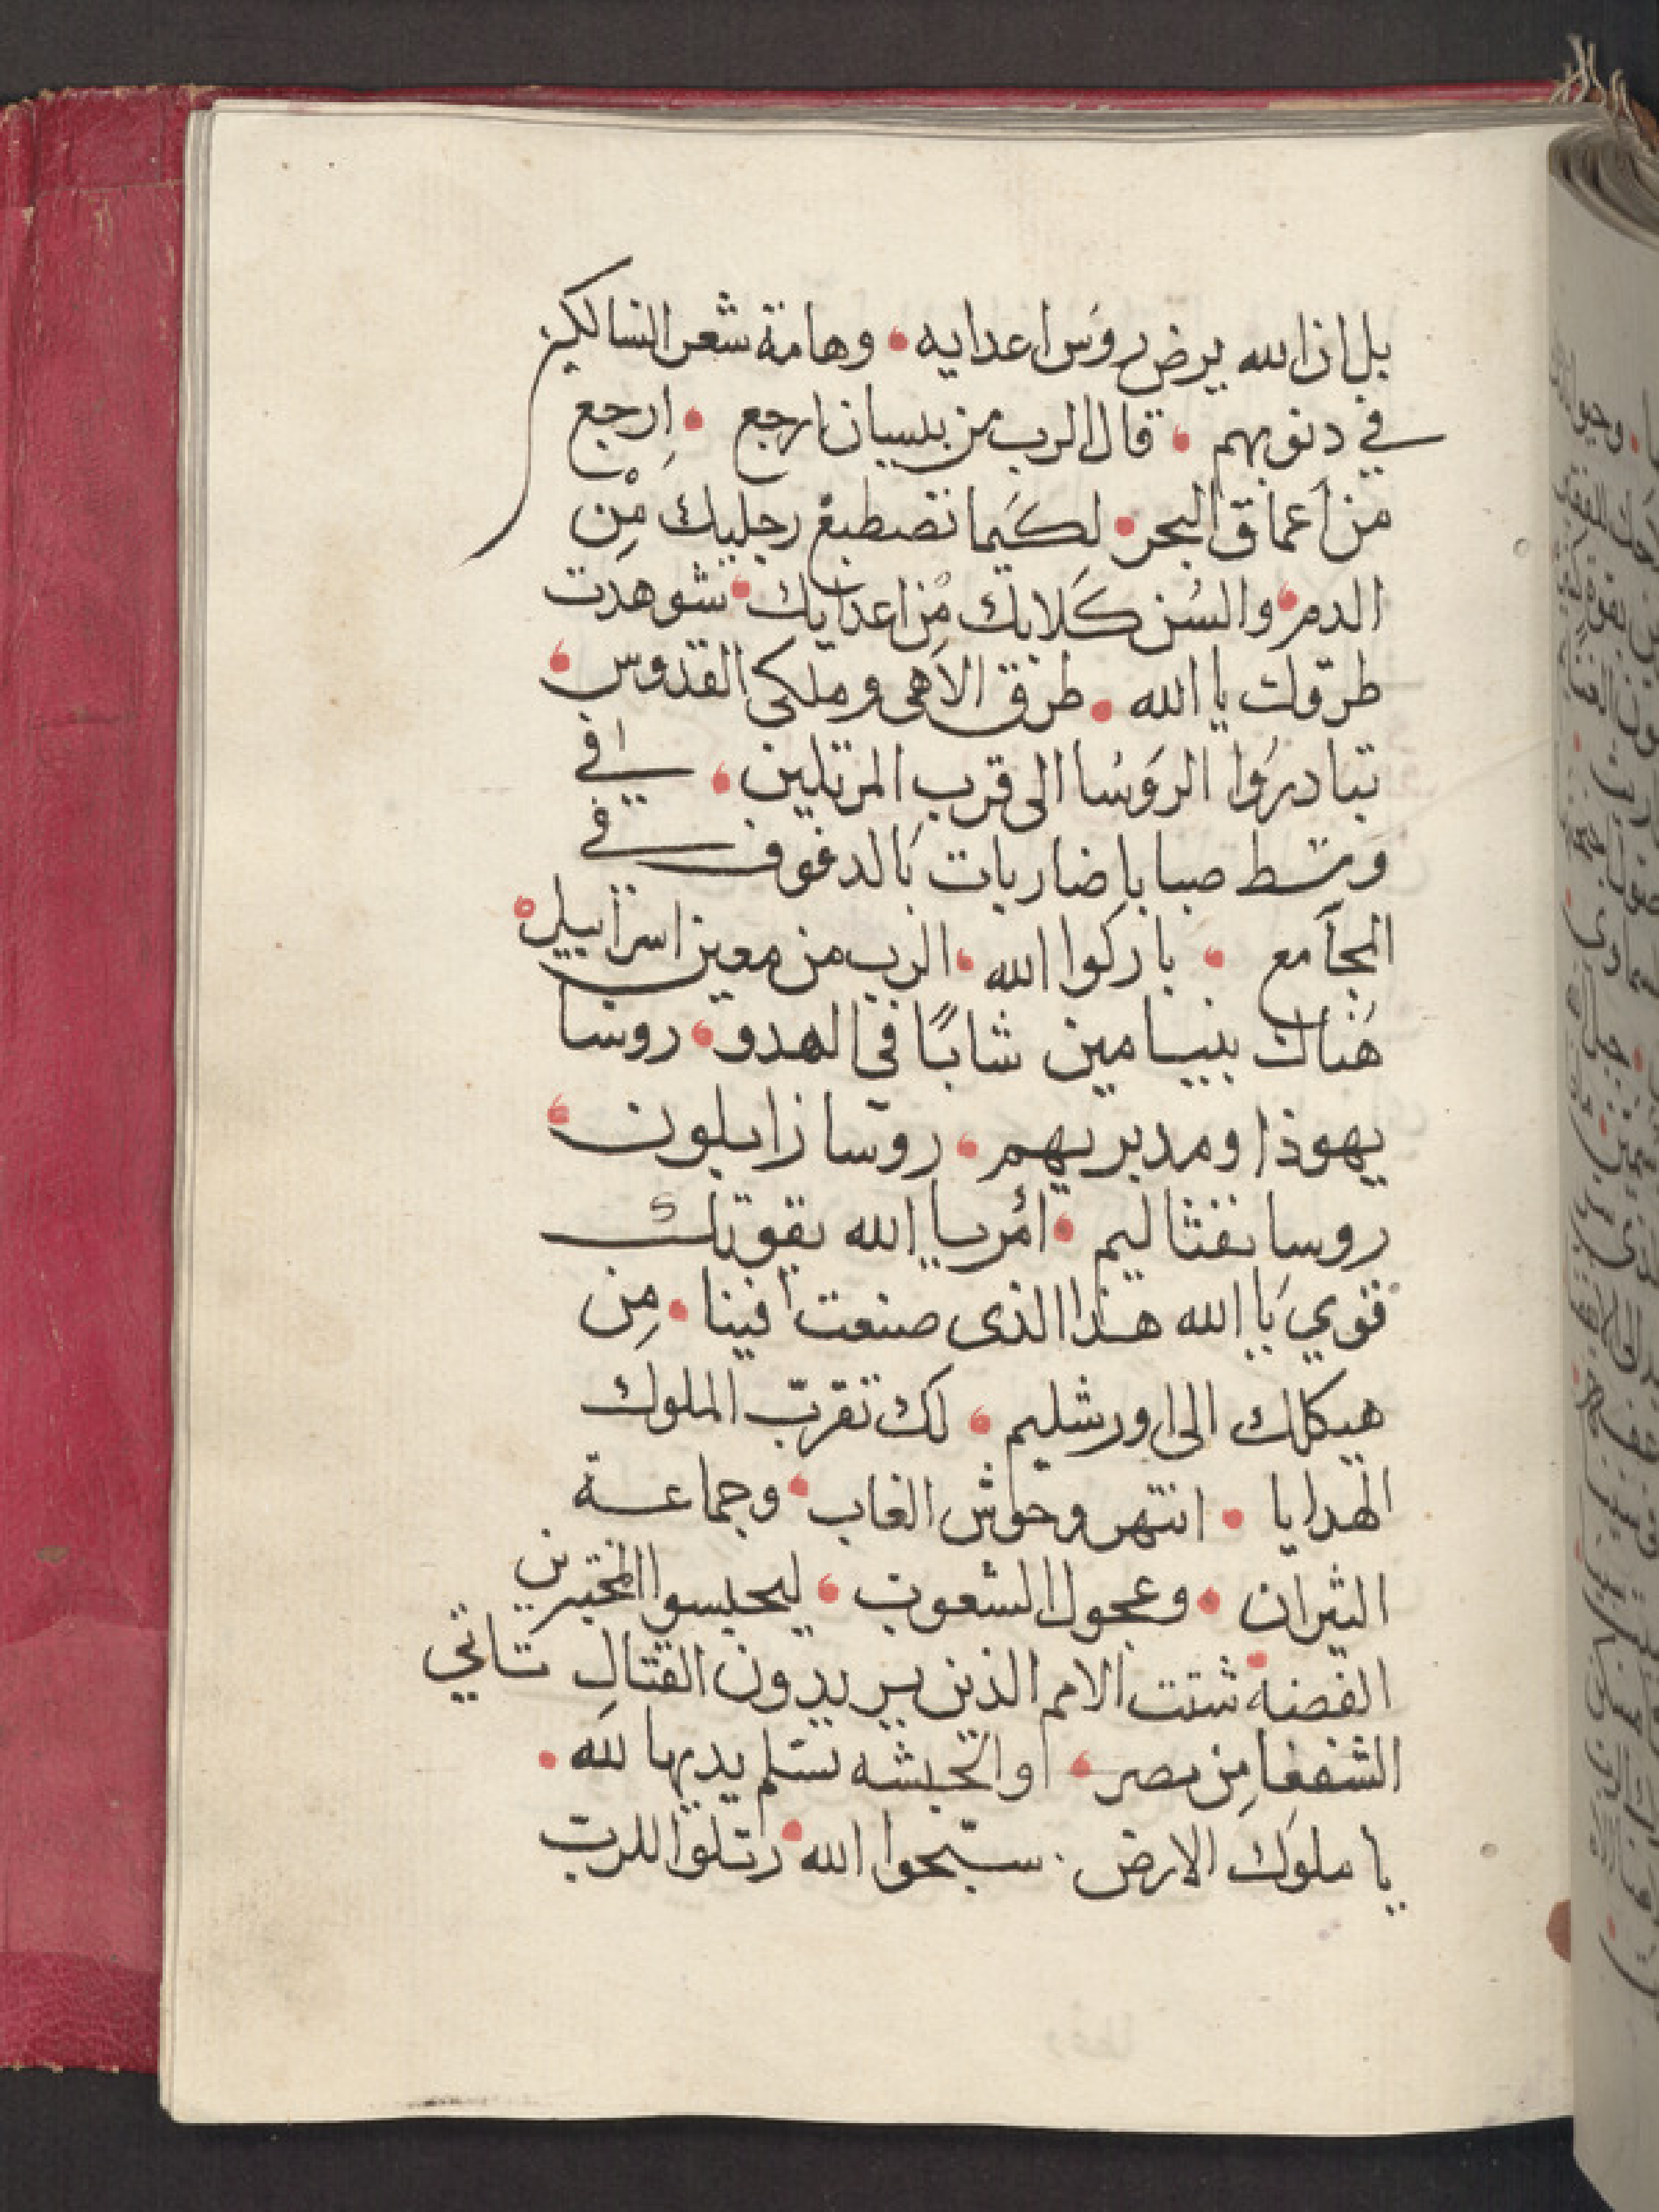 بل ان الله يرض روَس اعدايه • وهامة شعر السالكين
في دنوبهم • قال الرب من بيسان ارجع • اِرجع
من اَعماق البحر • لكَيما تصطبغ رجليك مِن
الدم • والسُن كَلابك مُن اعدايك • شوهدت
طرقك يا الله • طرق الاهى وملكى القدوس •
تبادرُوا الروَسُا الى قرب المرتلين • في
وسط صبايا ضاربات بَالدفوف في
المجاَمع • باركوا الله • الرب من معين اسراييل •
هُناك بنيامين شابًا في الهدو • روسا
يهوذا ومدبريهم • روسا زابلون •
روسا نفثاليم • اُمر يا الله بقوتك
قوي يَا الله هذا الذى صنعت فينا • مِن
هيكلك الى اورشليم • لك تقرّب الملوك
الهدايا • انتهر وحوش الغاب • وجماعة
الثيران • وعجول الشعوب • ليحبسوا المختبرين
الفضة • شتت الامم الذين يريدون القتال تاتي
الشفعا مِن مصر • او الحبشه تسَلم يديها لله •
يا ملوَك الارض • سبّحوا الله • رَتلوا للربّ